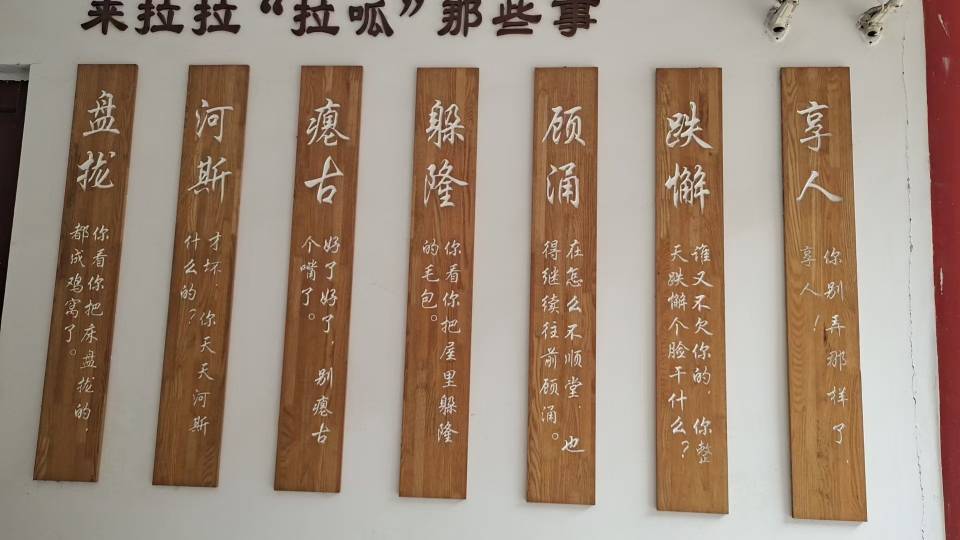 来拉拉“拉呱”那些事
盘拢
你看你把床盘拢的,
都成鸡窝了。
河斯
才坏,你天天河斯
什么的?
瘪古
好了好了,别瘪古
个嘴了。
躲隆
你看你把屋里躲隆
的毛包。
顾涌
在怎么不顺堂,也
得继续往前顾涌。
跌懈
谁又不欠你的,你整
天跌懈个脸干什么?
享人
你别弄那样了,
享人!